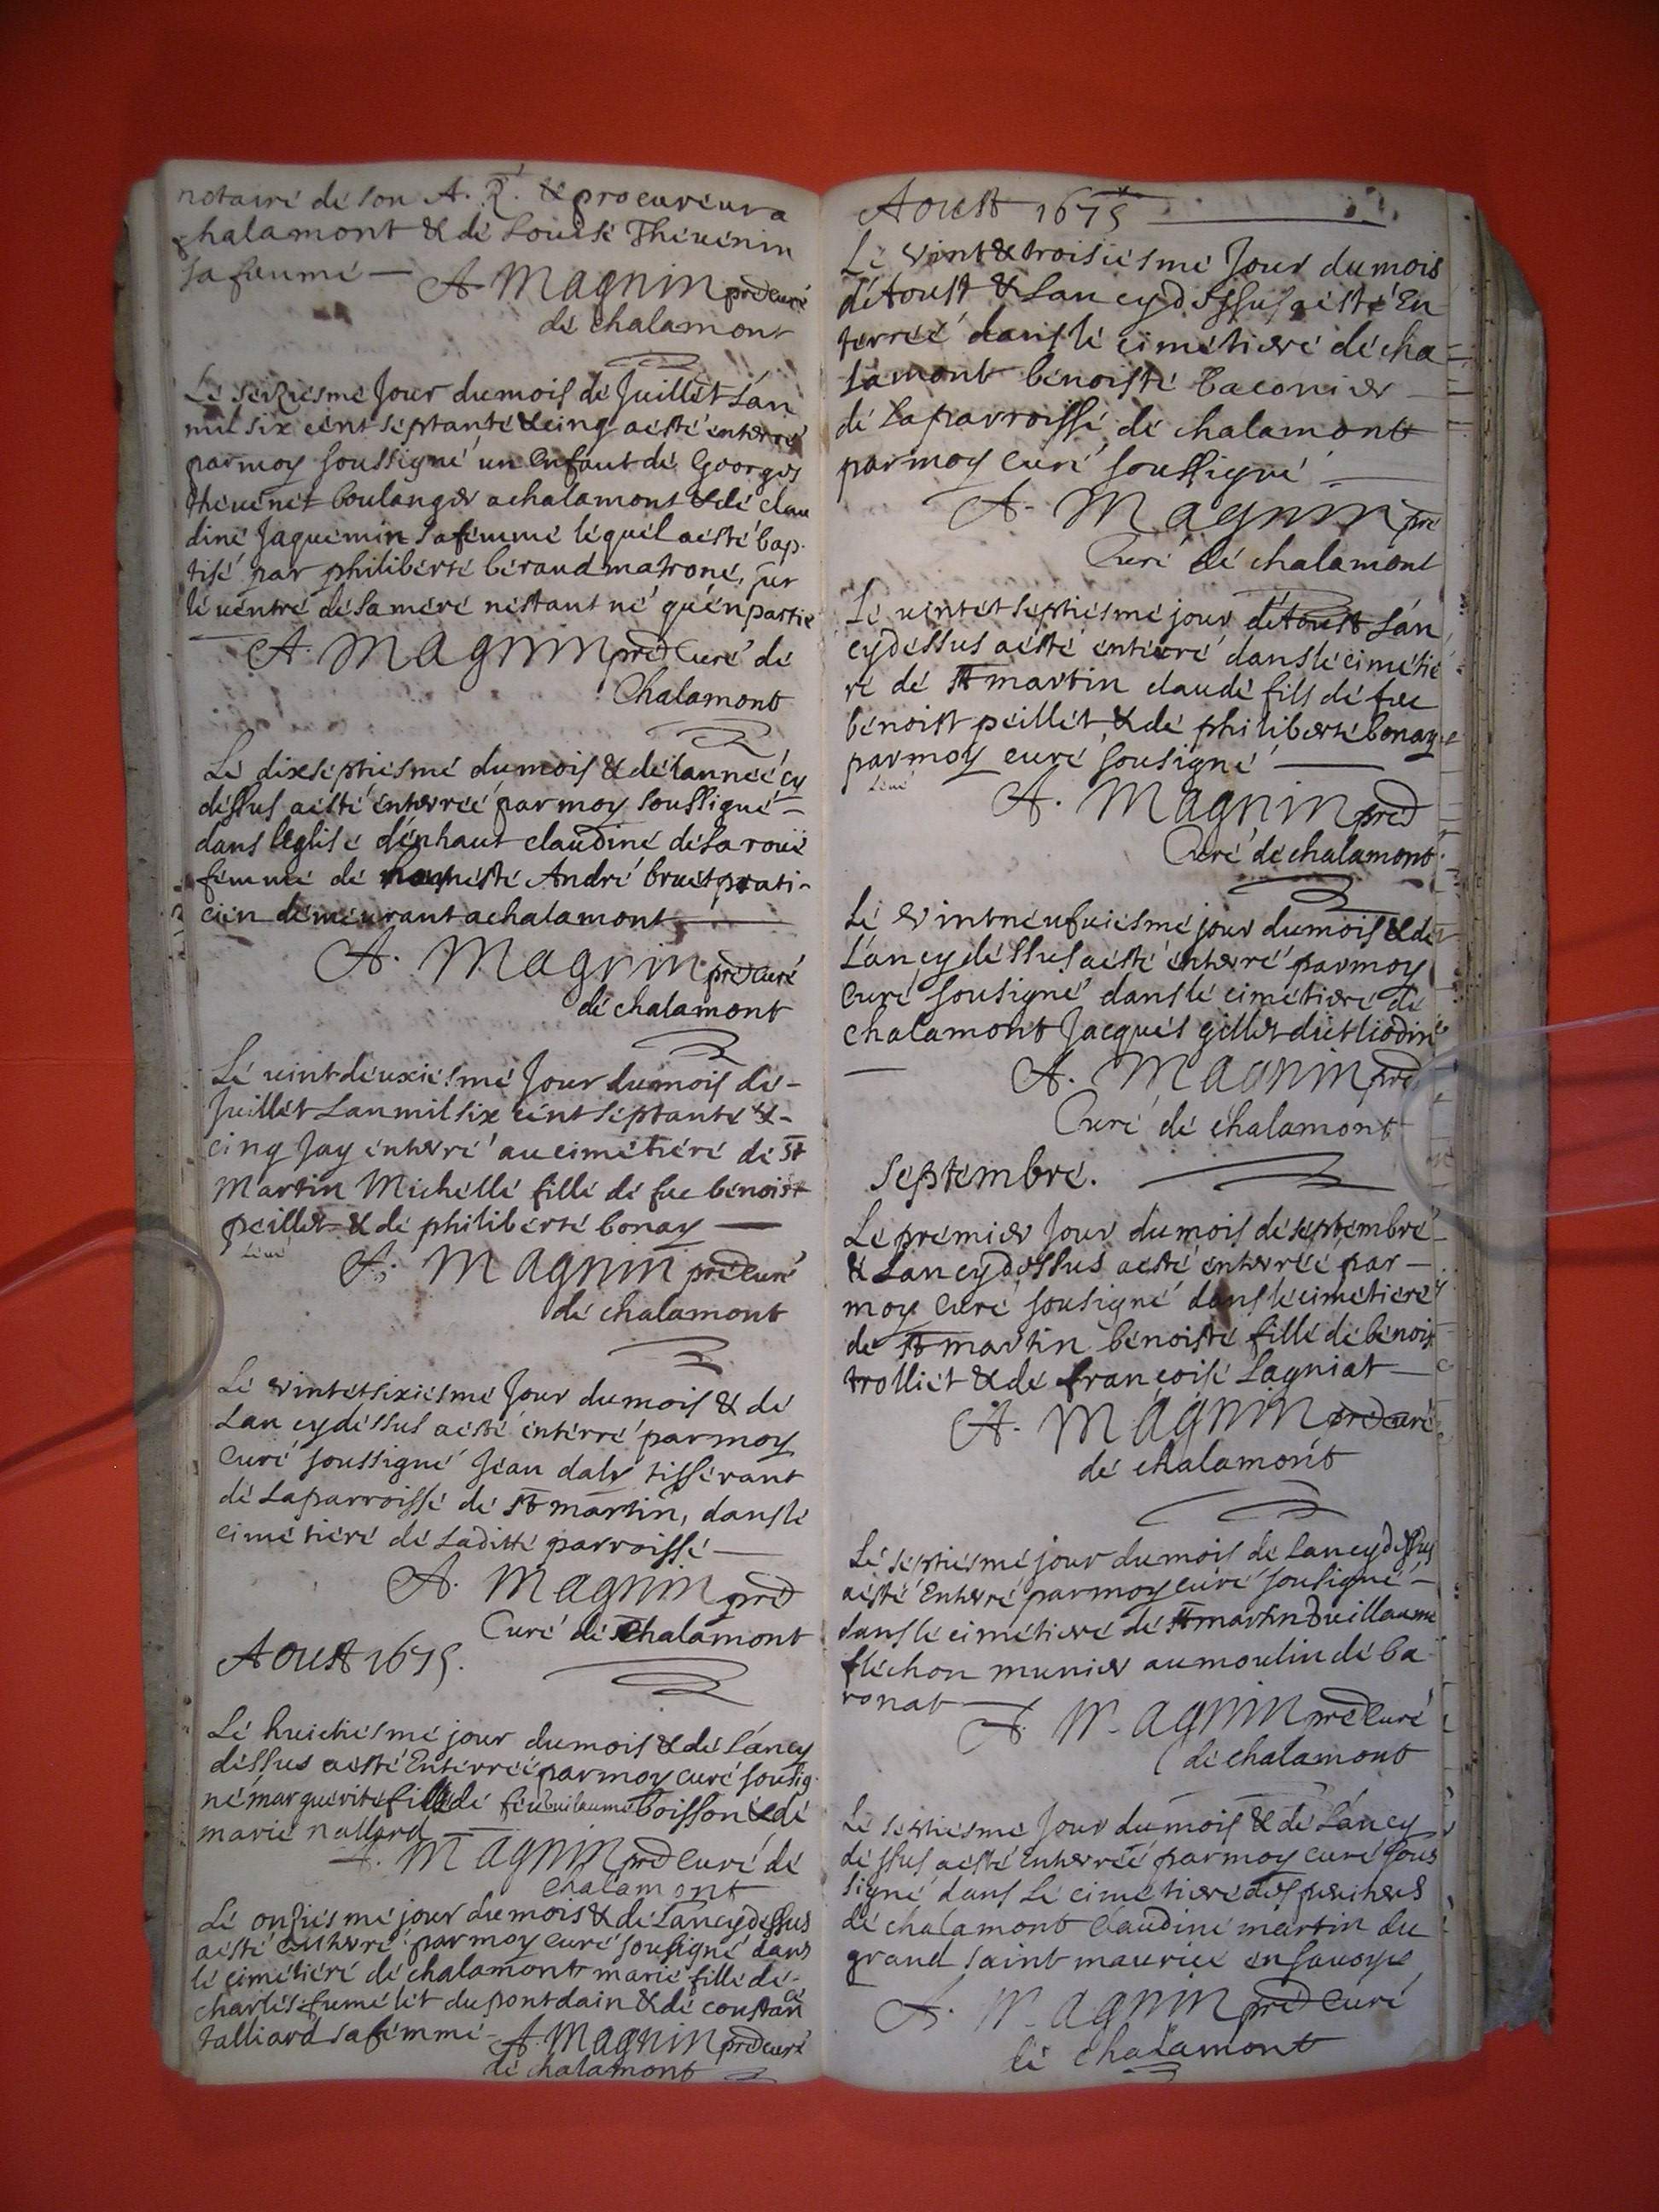 notairé dé son A. R. & procureur a
chalamont & dé Louisé Théuénin
sa faumé — A. Magnin pre curé
dé chalamont
Lé seiziésmé Jour du mois dé Juillét Lán
mil six cént séptanté & cinq aésté entérré
par moy soussigné un Enfant dé Georges
théuénét boulanger a chalamont & dé clau
diné Jaquémin sa fémmé léquél a ésté bap-
tisé par philibérté béraud matroné, sur
lé uéntré dé sa méré n'éstant né qu'én partié
A. Magnin pre Curé dé
Chalamont
Lé dixséptiésmé du mois & dé lannéé cy
déssus aésté entérréé par moy soussigné
dans léglisé d'énhaut claudiné dé la rouë
fémmé dé honnésté André bruét prati-
cién démeurant a chalamont
A. Magnin pre curé
dé chalamont
Lé uint déuxiésmé Jour du mois dé-
Juillét Lan mil six cént séptanté &-
cinq Jay énterré au cimétiéré dé St
Martin Michéllé fillé dé feu bénoist
péillet & dé philibérté bonay —
A. Magnin pre curé
dé chalamont
Lé vintétsixiésmé Jour du mois & dé
Lan cy déssus aésté entérré par moy
Curé soussigné Jéan daly tissérant
dé La parroissé dé St martin, dans lé
cimétiéré dé Laditté parroissé —
A. Magnin pre
Curé dé Chalamont
Aoust 1675.
Lé huictiésmé jour du mois & dé Láncy
déssus aésté Entérréé par moy curé sousig-
né marguérite fillé dé feu Guillaumé boisson & dé
marié nallard
A. Magnin pre curé dé
chalamont
Lé onziésmé jour du mois & dé Lancy dessus
aésté entérré par moy curé sousigné dans
lé cimétiéré dé chalamont marié fillé dé-
charlés fumélét du pont dain & dé constan
ce
talliard sa fémmé — A. Magnin pre curé
dé chalamont
Aoust 1675
Lé vint & troisiésmé Jour du mois
d'Aoust & Lan cy déssus aésté En-
terréé dans lé cimétieré dé cha-
lamont bénoisté baconier
dé la parroissé dé chalamont
par moy curé soussigné
A. Magnin pre
Curé dé chalamont
Lé uintétséptiésmé jour d'Aoust Lán
cy déssus aésté entérré dans lé cimétié
ré dé St martin claudé fils dé feu
bénoist péillét & dé philiberté bonay
par moy curé sousigné
A. Magnin pre
Curé dé chalamont
Lé vintneufuiésmé jour du mois & dé
Láncy déssus aésté entérré par moy
Curé sousigné dans lé cimétieré dé
chalamont Jacqués gillet
A. Magnin pre
Curé dé chalamont
Séptembré.
Lé prémier Jour du mois dé séptembré
& Lan cy dessus aésté énterréé par-
moy Curé sousigné dans lé cimétiéré
dé St martin bénoisté fillé dé bénoist
trolliét & dé françoisé Lagniat
A. Magnin pre curé
dé chalamont
Lé séptiésmé jour du mois dé Lan cy déssus
aésté Entérré par moy curé sousigné
dans lé cimétieré dé St martin Guillaumé
fléchon munier au moulin dé ba
ronat
A. Magnin pre Curé
dé chalamont
Lé séptiésmé Jour du mois & dé Láncy
déssus aésté Entérréé par moy curé sous
signé dans Lé cimétieré
dé chalamont Claudiné martin du
grand saint mauricé en sauoyé
A. Magnin pre Curé
dé chalamont